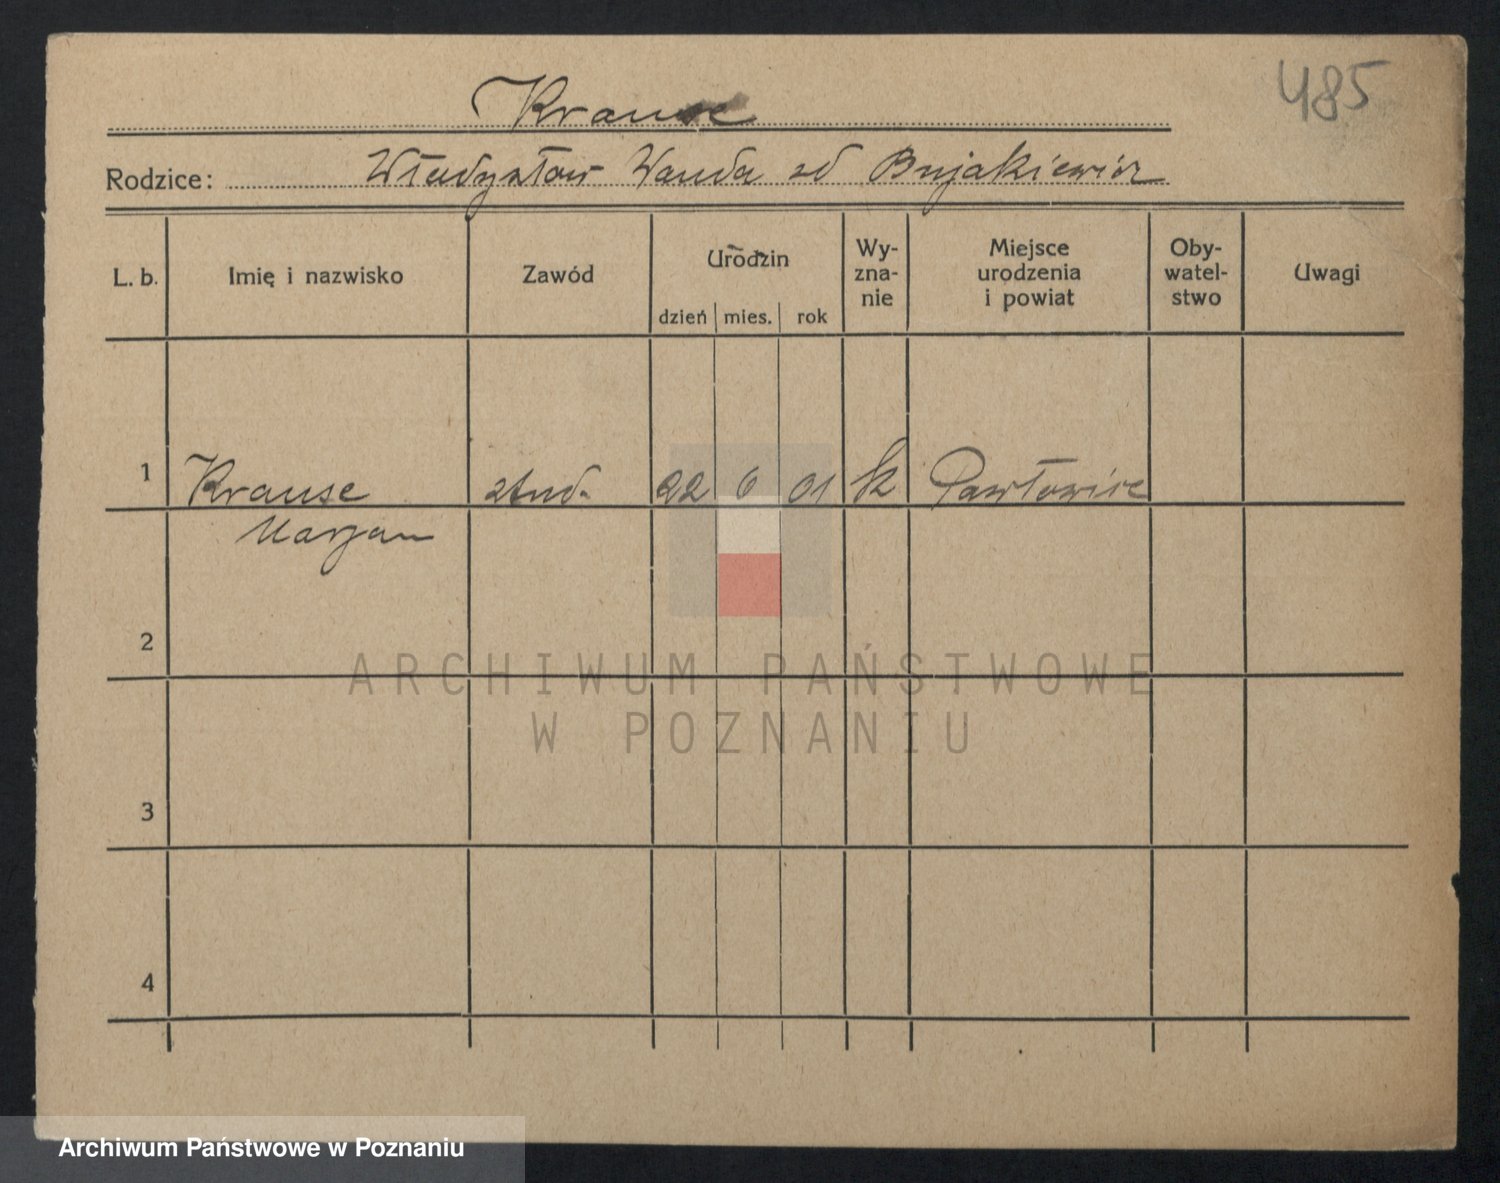 485
Krause
Rodzice: Władysław Wanda zd Bujakiewicz
L. b. Imię i nazwisko Zawód Urodzin dzień mies. rok Wy-zna-nie Miejsce urodzenia i powiat Oby-watel-stwo Uwagi
1 Krause stud. 22 6 01 k Pawłowice
Marjan
2
ARCHIWUM PAŃSTWOWE
W POZNANIU
3
4
Archiwum Państwowe w Poznaniu